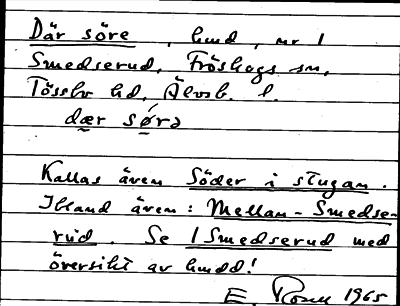 Där söre, hmd, nr 1
Smedserud, Fröskogs sn,
Tössbo hd, Älvsb. l.
dær sørə
Kallas även Söder i stugan.
Ibland även: Mellan-Smedse-
rud. Se 1 Smedserud med
översikt av hmdd!
E. 1965